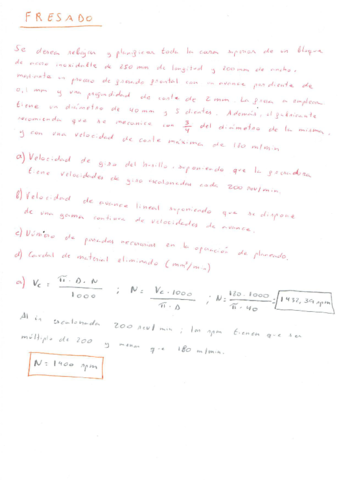 FRESADO
Se desea rebajar y planear toda la cara superior de un bloque
de acero inoxidable de 250 mm de longitud y 100 mm de ancho,
mediante un proceso de fresado frontal con un avance por diente de
0,1 mm y una profundidad de corte de 2 mm. La fresa a emplear
tiene un diámetro de 40 mm y 5 dientes. Además, el fabricante
recomienda que se mecanice con 3/4 del diámetro de la misma,
y con una velocidad de corte máxima de 180 m/min
a) Velocidad de giro del husillo, suponiendo que la fresadora
tiene velocidades de giro escalonadas cada 200 rev/min.
b) Velocidad de avance lineal suponiendo que se dispone
de una gama continua de velocidades de avance.
c) Número de pasadas necesarias en la operación de planeado.
d) Caudal de material eliminado (mm³/min)
a) Vc = π · D · N / 1000 ; N = Vc · 1000 / π · D ; N = 180 · 1000 / π · 40 = 1432,39 rpm
Al ir escalonada 200 rev/min ; las rpm tienen que ser
múltiplo de 200 y menor que 180 m/min.
N = 1400 rpm